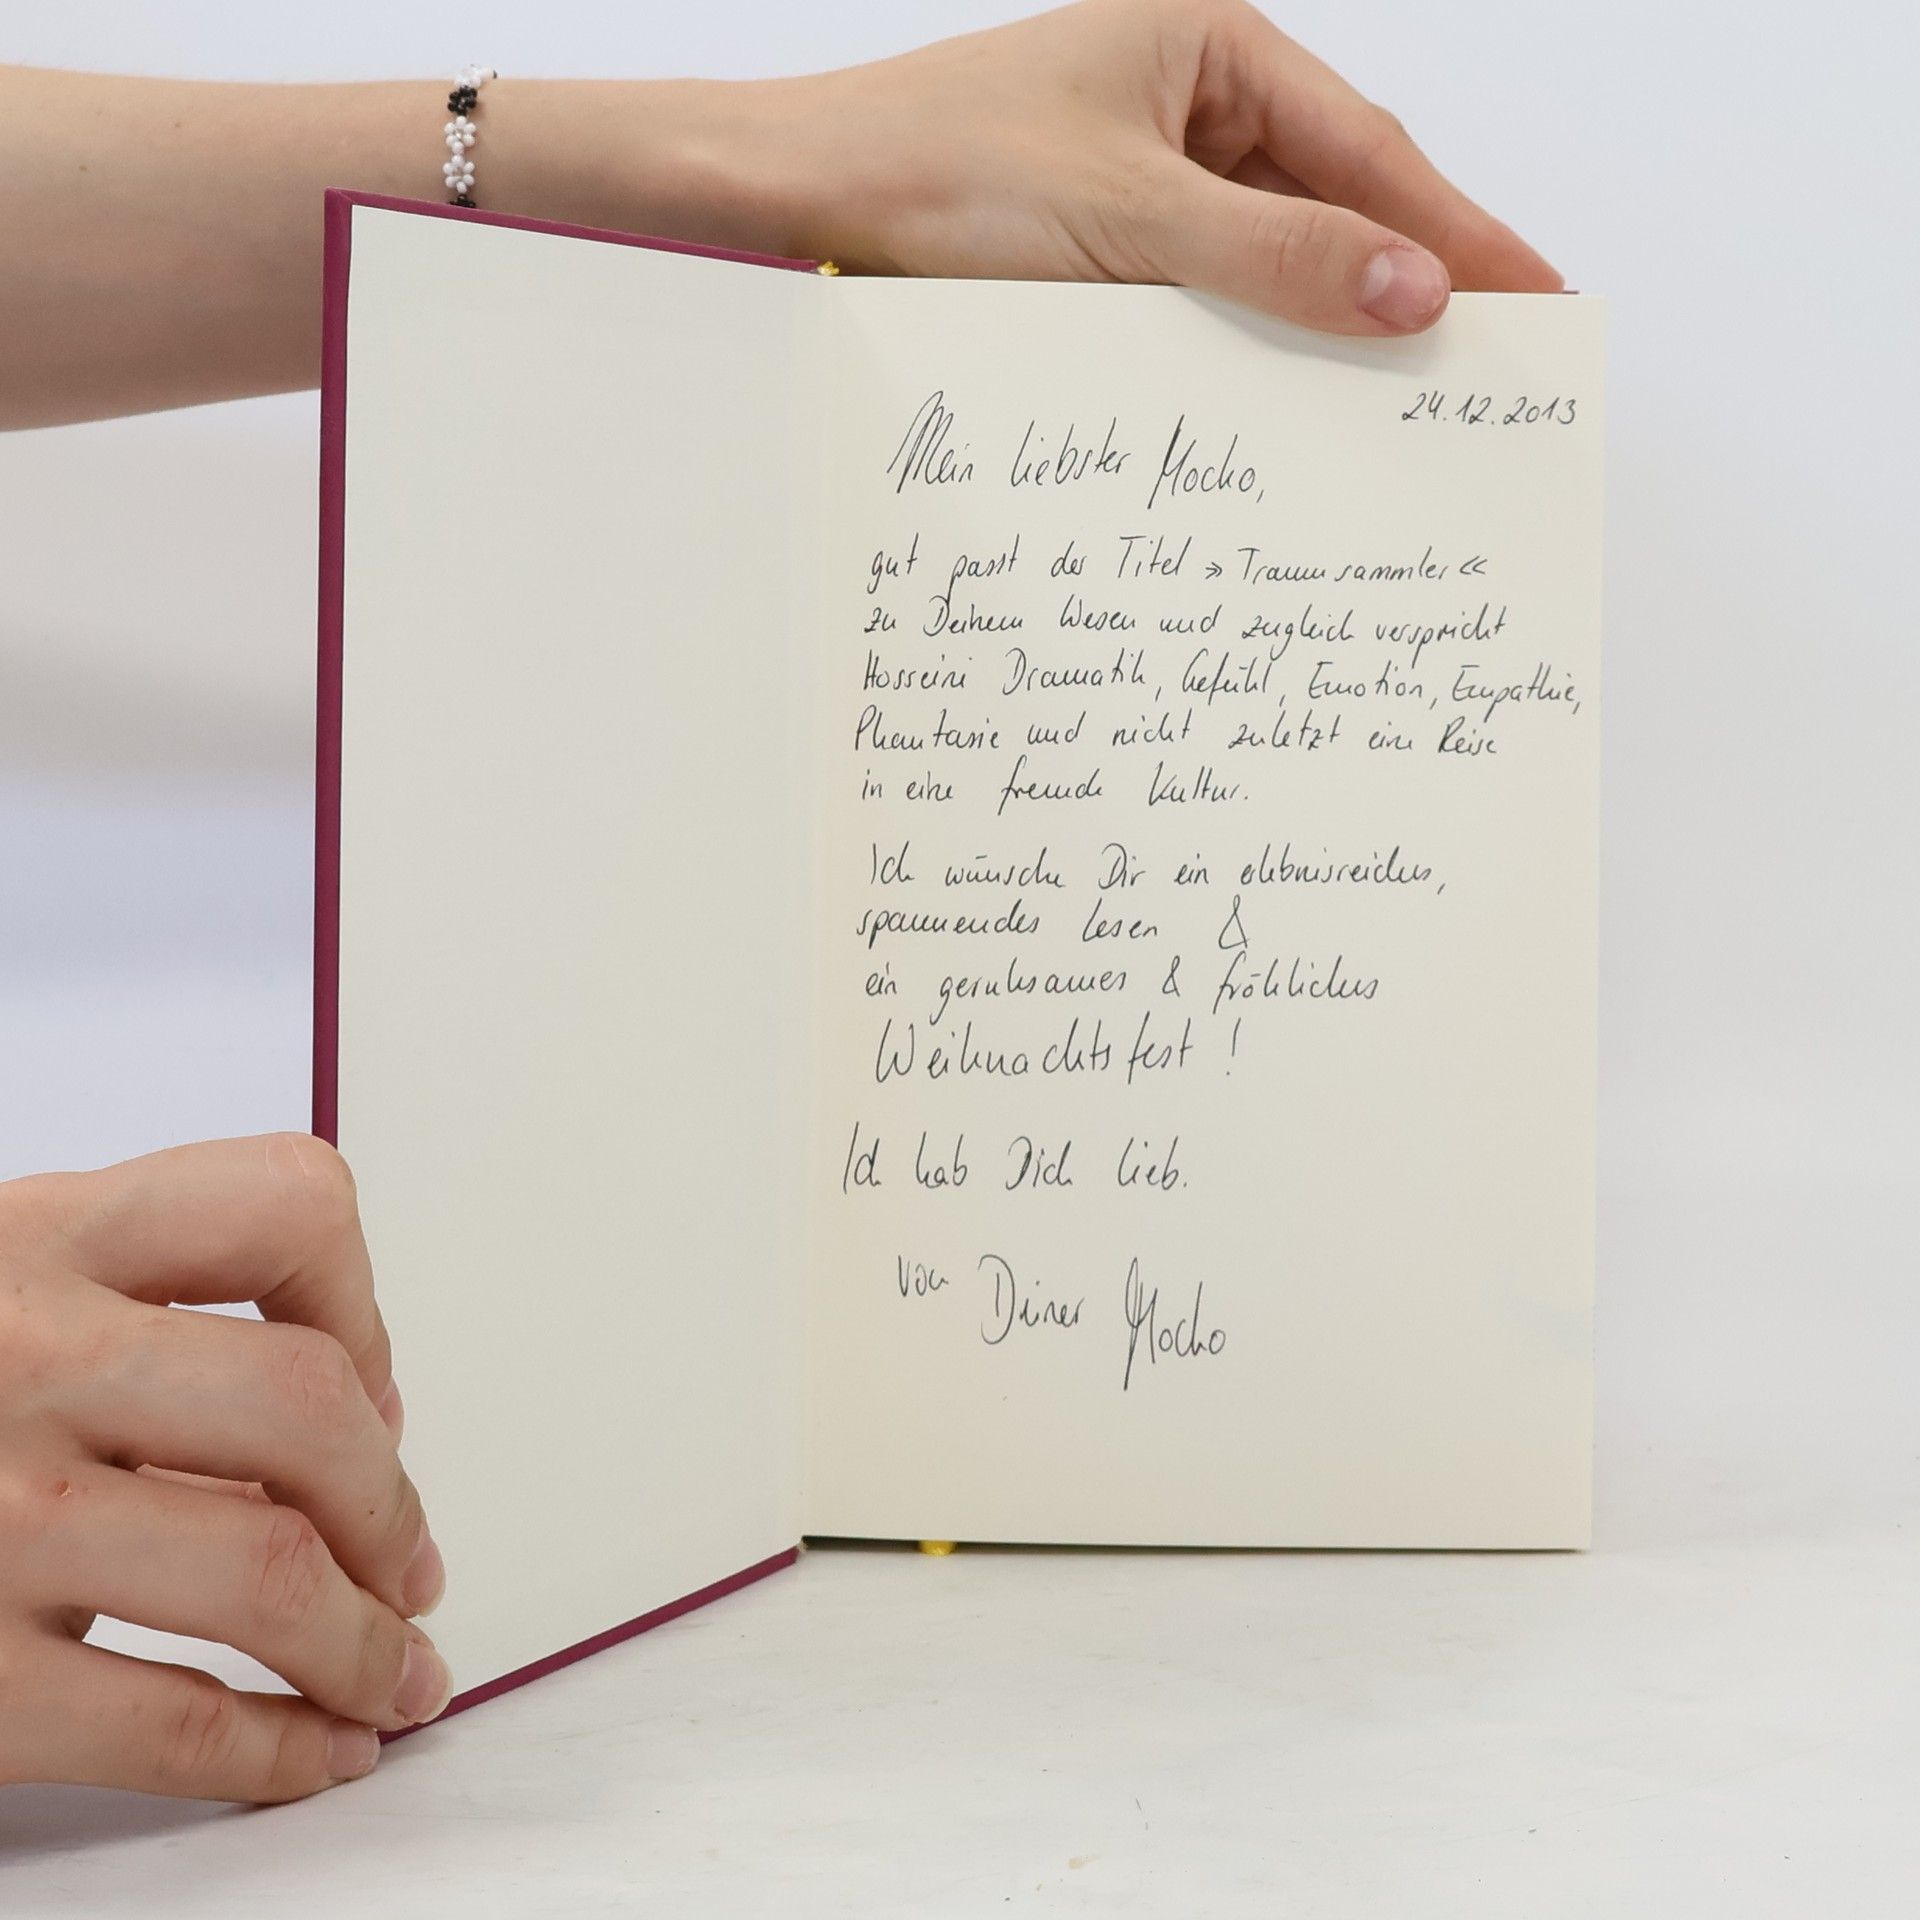 24.12.2013
Mein liebster Mocko,
gut passt der Titel »Traumsammler«
zu Deinem Wesen und zugleich verspricht
Hosseini Dramatik, Gefühl, Emotion, Empathie,
Phantasie und nicht zuletzt eine Reise
in eine fremde Kultur.
Ich wünsche Dir ein erlebnisreiches,
spannendes Lesen &
ein geruhsames & fröhliches
Weihnachtsfest!
Ich hab Dich lieb.
von Deiner Mocko